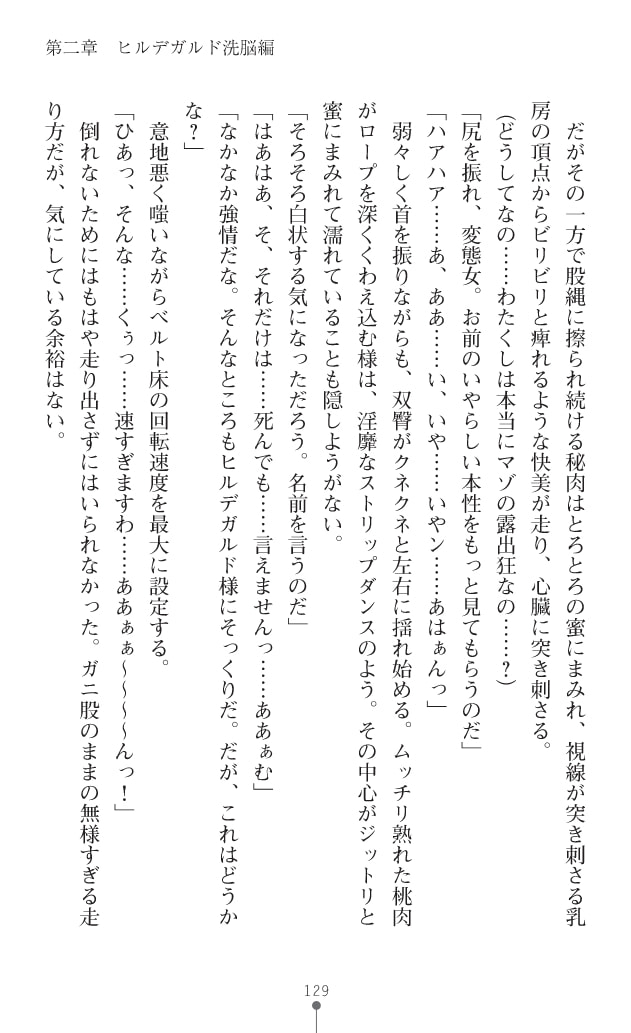 第二章　ヒルデガルド洗脳編
　だがその一方で股縄に擦られ続ける秘肉はとろとろの蜜にまみれ、視線が突き刺さる乳
房の頂点からビリビリと痺れるような快美が走り、心臓に突き刺さる。
（どうしてなの……わたくしは本当にマゾの露出狂なの……？）
「尻を振れ、変態女。お前のいやらしい本性をもっと見てもらうのだ」
「ハアハア……あ、ああ……い、いや……いやン……あはぁんっ」
　弱々しく首を振りながらも、双臀がクネクネと左右に揺れ始める。ムッチリ熟れた桃肉
がロープを深くくわえ込む様は、淫靡なストリップダンスのよう。その中心がジットリと
蜜にまみれて濡れていることも隠しようがない。
「そろそろ白状する気になっただろう。名前を言うのだ」
「はあはあ、そ、それだけは……死んでも……言えませんっ……ああぁむ」
「なかなか強情だな。そんなところもヒルデガルド様にそっくりだ。だが、これはどうか
な？」
　意地悪く嗤いながらベルト床の回転速度を最大に設定する。
「ひあっ、そんな……くぅっ……速すぎますわ……ああぁぁ～～～～んっ！」
　倒れないためにはもはや走り出さずにはいられなかった。ガニ股のままの無様すぎる走
り方だが、気にしている余裕はない。
129